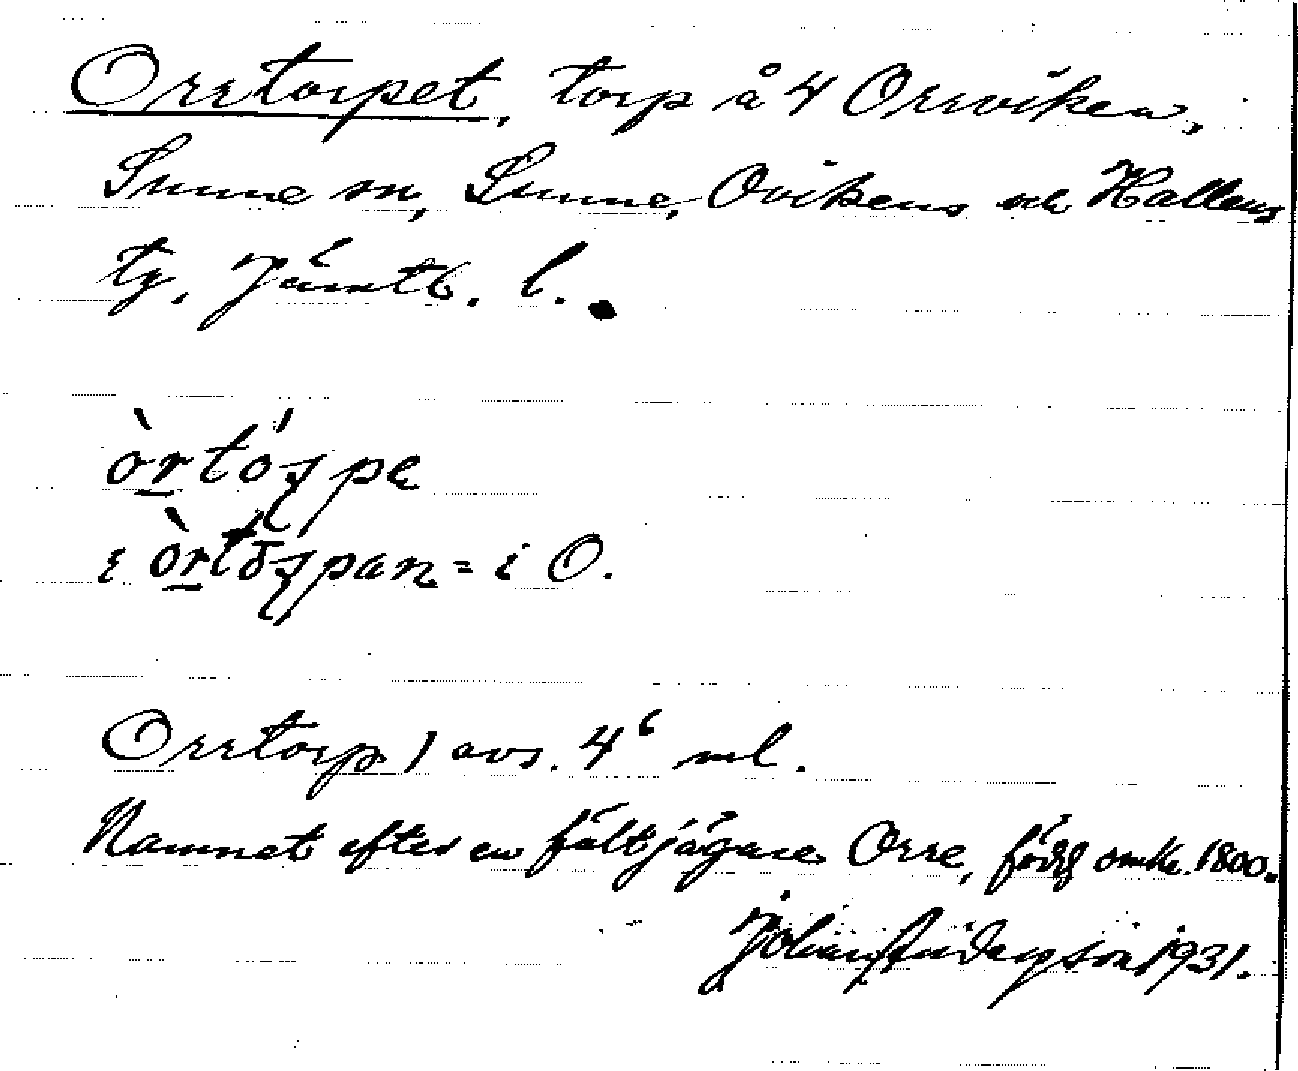 Orretorpet, torp å 4 Orrviken,
Sunne sn, Sunne, Ovikens och Hallens
tg, Jämtl. l.
òrtóʂpe
i òrtoʂpan = i O.
Orretorp 1 avs. 4⁶ ml.
Namnet efter en fältjägare Orre, född omkr. 1800.
Johan Anderson 1931.